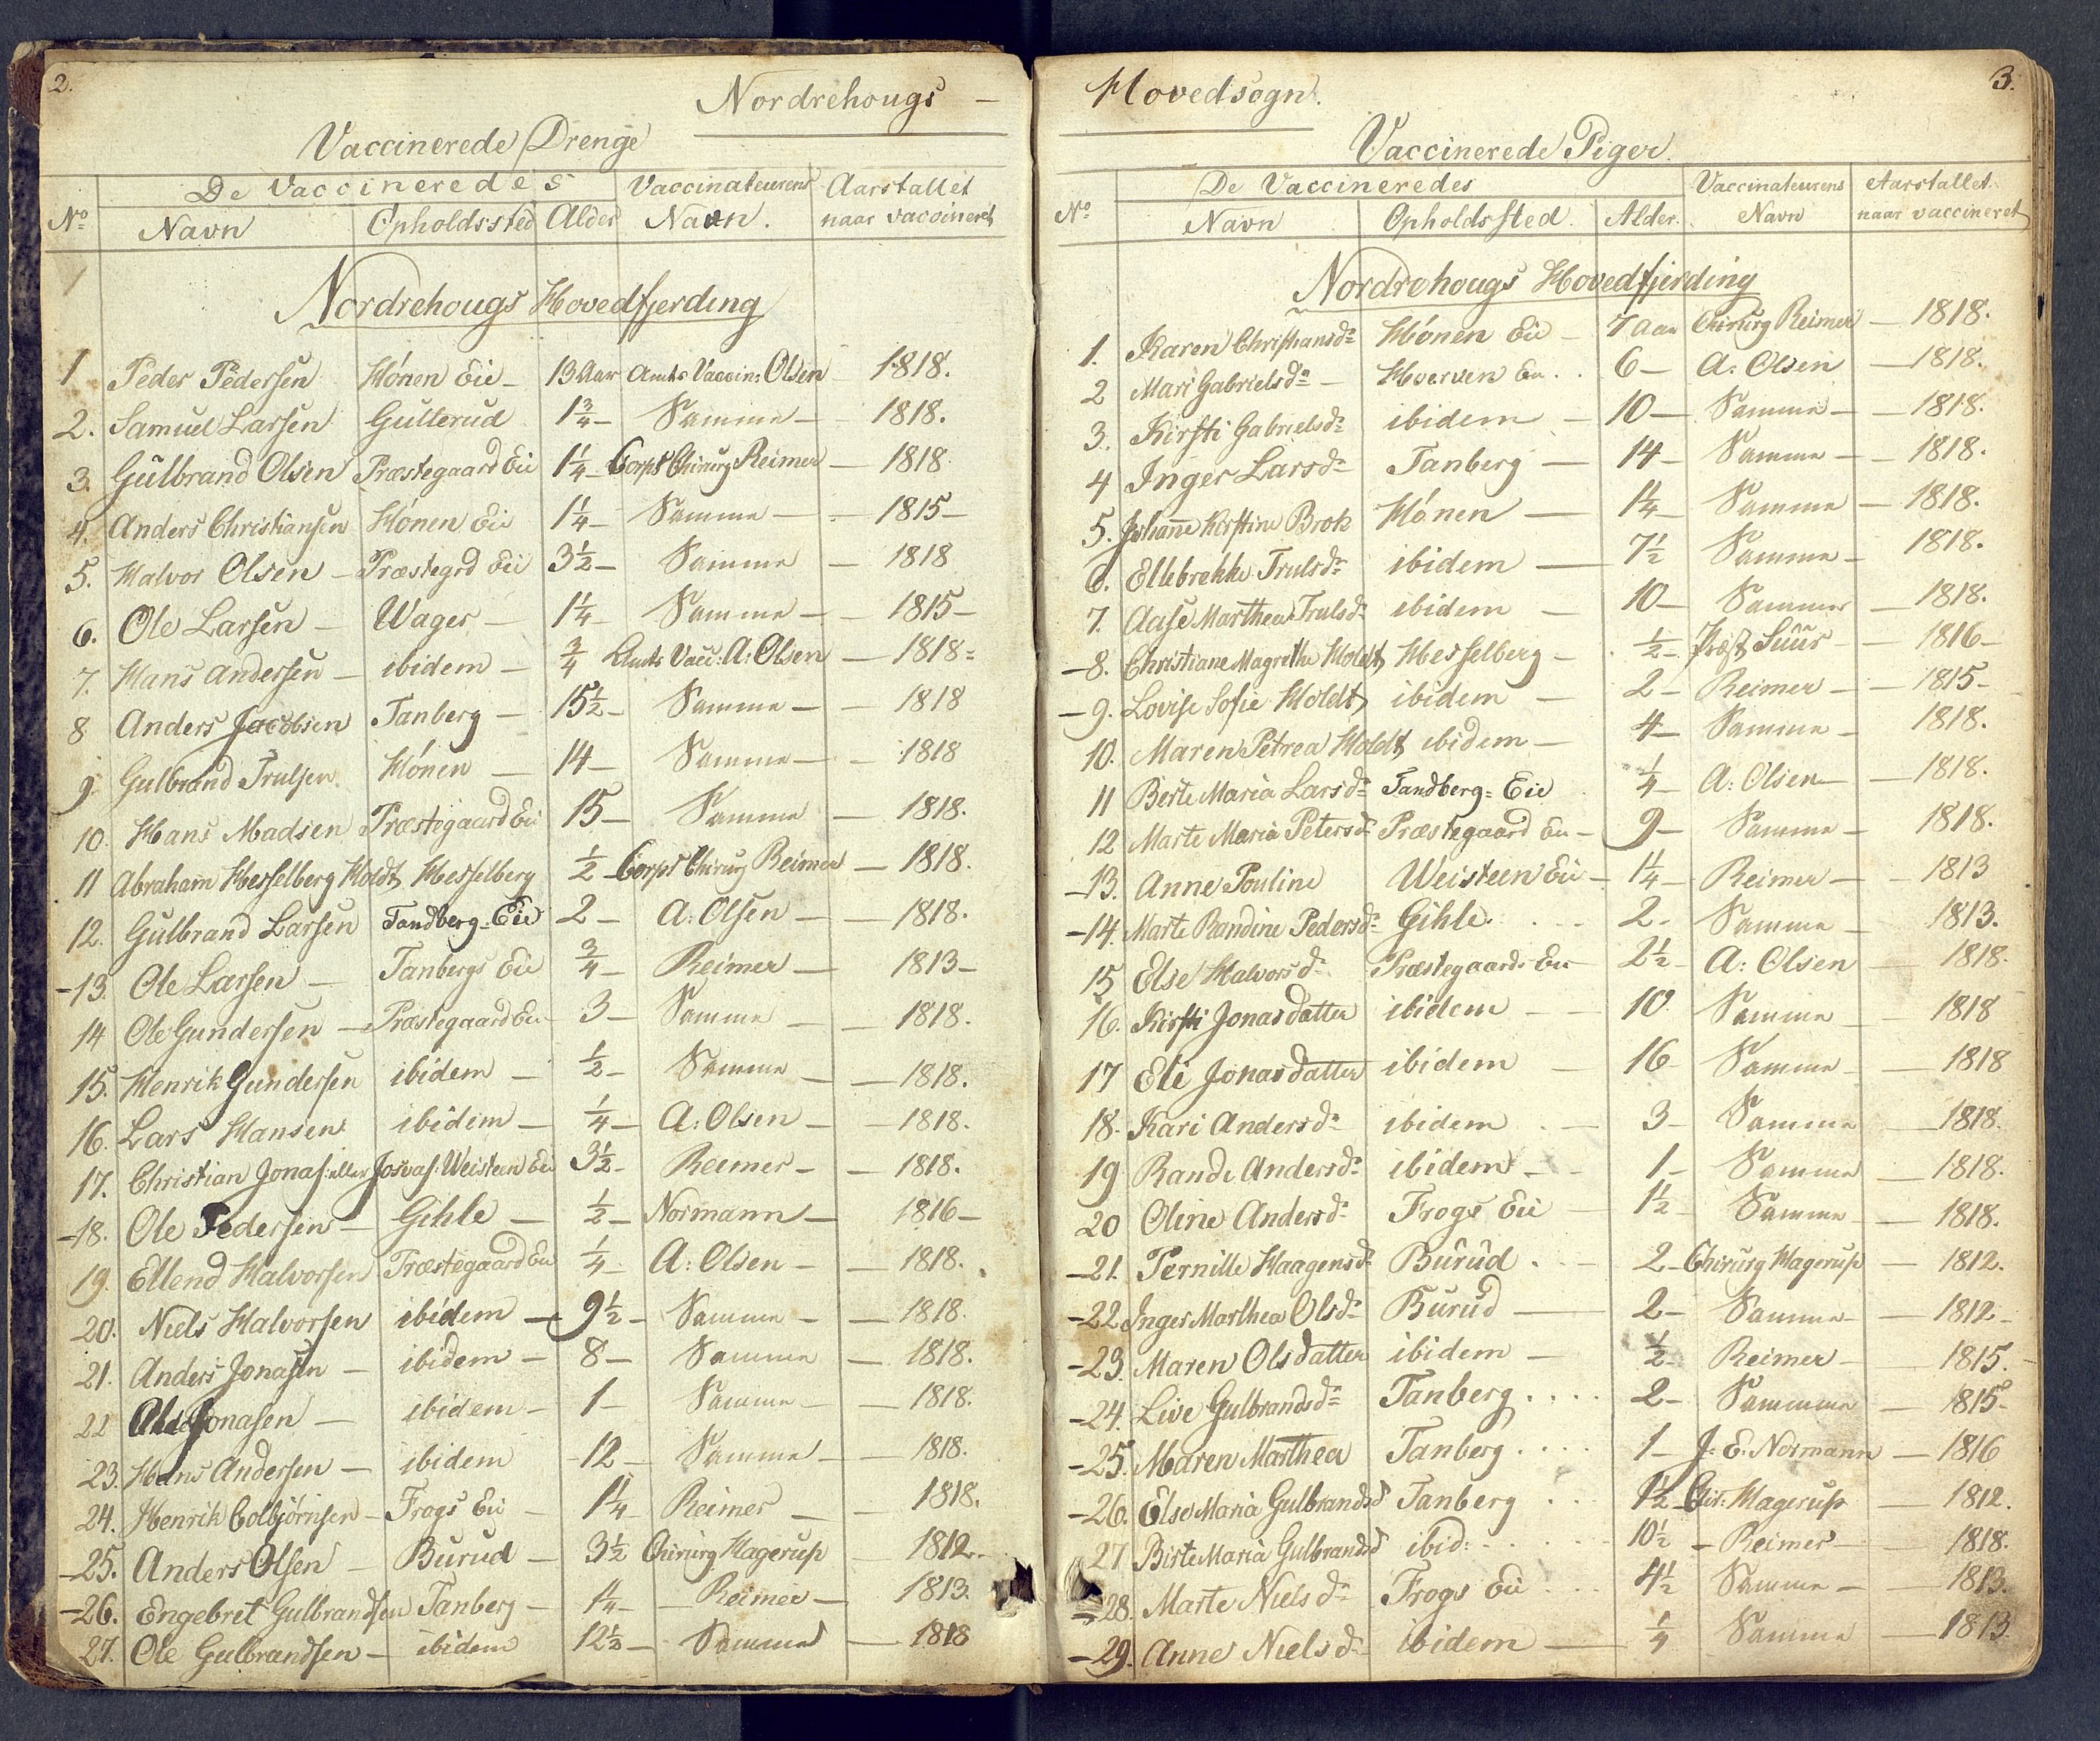 2.
Nordrehougs –
Vaccinerede Drenge
De Vaccineredes Vaccinateurens Aarstallet
No Navn Opholdssted Alder Navn. naar vaccineret
Nordrehougs Hovedfjerding
1 Peder Pedersen Hönen Eie – 13 Aar Amts Vaccin: Olsen 1818.
2. Samuel Larsen Gulterud 1 3/4 – Samme – 1818.
3. Gulbrand Olsen Præstegaard Eie 1 1/4 – Corps Chirurg Reimer – 1818
4. Anders Christiansen Hönen Eie 1 1/4 – Samme – 1815 –
5. Halvor Olsen – Præstegrd Eie 3 1/2 – Samme – 1818
6. Ole Larsen – Wager – 1 1/4 – Samme – 1815 –
7. Hans Andersen – ibidem – 3/4 Amts Vacc: A: Olsen – 1818 =
8 Anders Jacobsen Tanberg – 15 1/2 – Samme – – 1818
9. Gulbrand Trulsen Hönen – 14 – Samme – – 1818
10. Hans Madsen Præstegaard Eie 15 – Samme – 1818.
11 Abraham Hesselberg Holdt Hesselberg 1/2 – Corps Chirurg Reimer – 1818.
12. Gulbrand Larsen Tandberg = Eie 2 – A: Olsen – – 1818.
– 13. Ole Larsen – Tanbergs Eie 3/4 – Reimer – 1813 –
14 Ole Gundersen – Præstegaard Eie 3 – Samme – – 1818.
15. Henrik Gundersen ibidem – 1/2 – Samme – – 1818.
16. Lars Hansen ibidem – 1/4 – A: Olsen – – 1818.
17. Christian Jonas: eller Josvas: Weisteen Eie 3 1/2 – Reimer – – 1818.
– 18. Ole Pedersen – Gihle – 1/2 – Normann – 1816 –
19. Ellend Halvorsen Præstegaard Eie 1/4 – A: Olsen – – 1818.
20. Niels Halvorsen ibidem – 9 1/2 – Samme – – 1818.
21. Anders Jonasen – ibidem – 8 – Samme – 1818.
22 Ole Jonasen – ibidem – 1 – Samme – – 1818.
23. Hans Andersen – ibidem 12 – Samme – – 1818.
24. Henrik Colbjörnsen – Frogs Eie – 1 1/4 – Reimer – – 1818.
– 25. Anders Olsen – Burud – 3 1/2 Chirurg Hagerup 1812 –
– 26. Engebret Gulbrandsen Tanberg – 1/4 – – Reimer – 1813.
27. Ole Gulbrandsen – ibidem 12 1/2 – Samme – 1818
3.
Hovedsogn.
Vaccinerede Piger.
De Vaccineredes Vaccinateurens Aarstallet
No Navn Opholdssted. Alder. Navn naar vaccineret
Nordrehougs Hovedfjerding
1. Karen Christiansd. Hönen Eie – 7 Aar Chirurg Reimer – 1818.
2 Mari Gabrielsd. – Hverven Eie . . 6 – A: Olsen – 1818.
3. Kirsti Gabrielsd. ibidem – 10 – Samme – – 1818.
4 Inger Larsd. Tanberg – 14 – Samme – – 1818.
5. Johanne Kirstine Brok Hönen – 1 1/4 – Samme – 1818.
6. Ellebrekke Trulsd. ibidem – 7 1/2 Samme – 1818.
7. Aase Marthea Trulsd. ibidem – 10 – Sammes – 1818.
– 8. Christiane Magrethe Holdt Hesselberg – 1/2 – Præst Suur – – 1816 –
– 9. Lovise Sofie Holdt ibidem – 2 – Reimer – – 1815 –
10. Maren Petrea Holdt ibidem – 4 – Samme – 1818.
11 Berte Maria Larsd. Tandberg = Eie 1/4 – A: Olsen – – 1818.
12 Marte Maria Petersd. Præstegaard Eie – 9 – Samme – 1818.
– 13. Anne Pouline Weisteen Eie – 1 1/4 – Reimer – – 1813
– 14. Marte Randine Pedersd. Gihle. . . . 2 – Samme – 1813.
15 Else Halvorsd. Præstegaards Eie – 2 1/2 – A: Olsen – 1818.
16. Kirsti Jonasdatter ibidem – – 10 Samme – 1818
17 Eli Jonasdatter ibidem – 16 – Samme – – 1818
18. Kari Andersd. ibidem . – 3 – Samme – 1818.
19 Rande Andersd. ibidem – – 1 – Samme – 1818.
20 Oline Andersd. Frogs Eie – 1 1/2 Samme – – 1818.
– 21. Pernille Haagensd. Burud . – 2 – Chirurg Hagerup – 1812.
– 22. Inger Marthea Olsd. Burud – 2 – Samme – – 1812 –
– 23. Maren Olsdatter ibidem – 1/2 – Reimer – 1815.
– 24. Live Gulbrandsd. Tanberg . . . . 2 – Sammme – 1815 –
– 25. Maren Marthea Tanberg . . . . 1 – J: E. Normann – 1816
– 26. Else Maria Gulbrandsd Tanberg . . . 1 1/2 – Chir: Hagerup – 1812.
27 Birte Maria Gulbrandsd ibid: – . . . . 10 1/2 – Reimer – 1818.
– 28. Marte Nielsd. Frogs Eie . . . 4 1/2 Samme – 1813.
– 29. Anne Nielsd. ibidem – 1/4 Samme – 1813.